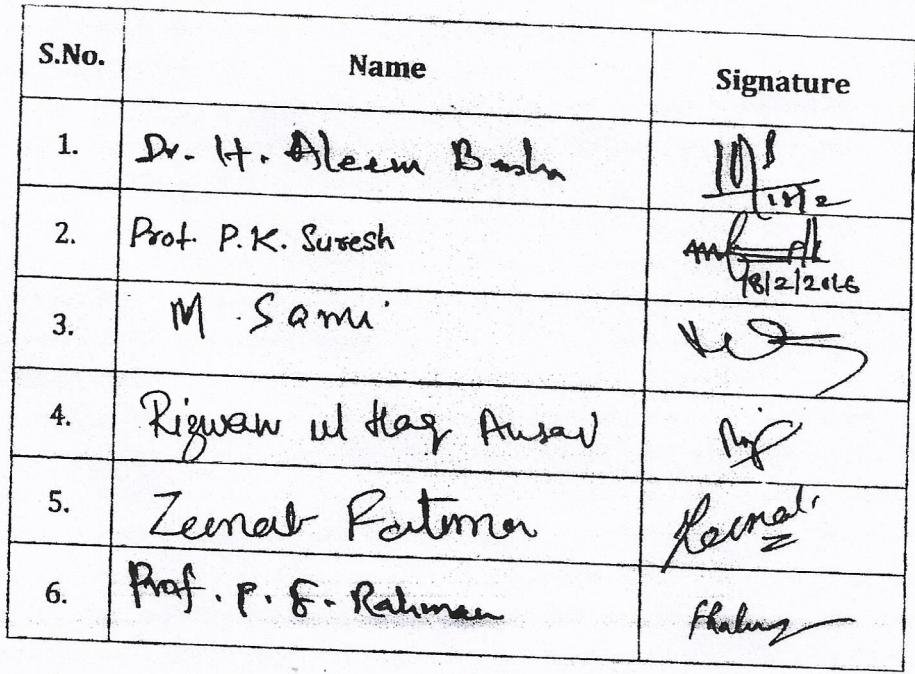 S.No. Name Signature
1. Dr. H. Aleem Basha 18/2
2. Prof. P. K. Suresh 18/2/2016
3. M. Sami
4. Rizwan ul Haq Ansari
5. Zeenat Fatima Zeenat
6. Prof. P. F. Rahman